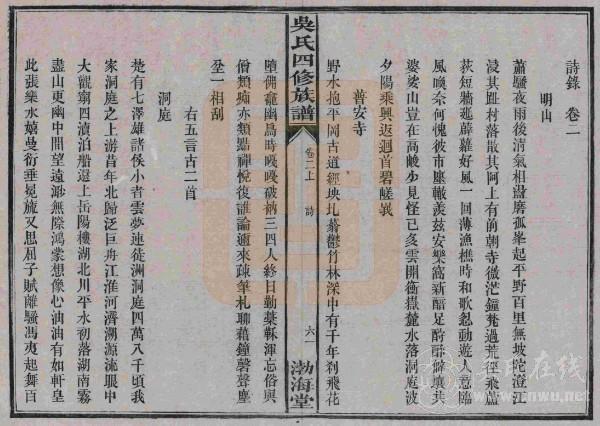 詩錄 卷二
明山
蕭騷夜雨後清氣相盪磨孤峯起平野百里無坡陀澄江
浸其趾村落散其阿上有前朝寺微茫鐘梵過荒徑飛蘆
荻短牆遮薜蘿好風一回薄漁樵時和歌忽動遊人意臨
風喚奈何愧彼市廛轍羨茲安樂窩新醅足酌醉解壤共
婆娑山豈在高峻少見怪已多雲開衡嶽麓水落洞庭波
夕陽乘興返迴首碧嵯峩
普安寺
野水抱平岡古道經坱圠蓊鬱竹林深中有千年剎飛花
吳氏四修族譜
卷二上 詩 六一
渤海堂
墮佛龕幽鳥時嘎嘎破衲三四人終日勤藁秣渾忘俗與
僧類痴亦類黠禪悅復誰論邇來疎筆札聊藉鐘磬聲塵
坌一相刮
右五言古二首
洞庭
楚有七澤雄諸侯小者雲夢連徒洲洞庭四萬八千頃我
家洞庭之上游昔年北歸泛巨舟江淮河濟溯源流眼中
大觀窮四瀆泊船還上岳陽樓湖北川平水初落湖南霧
盡山更幽中開望遠渺無際鴻蒙想像心油油有如軒皇
此張樂水嬉曼衍垂冕旒又思屈子賦離騷馮夷起舞百